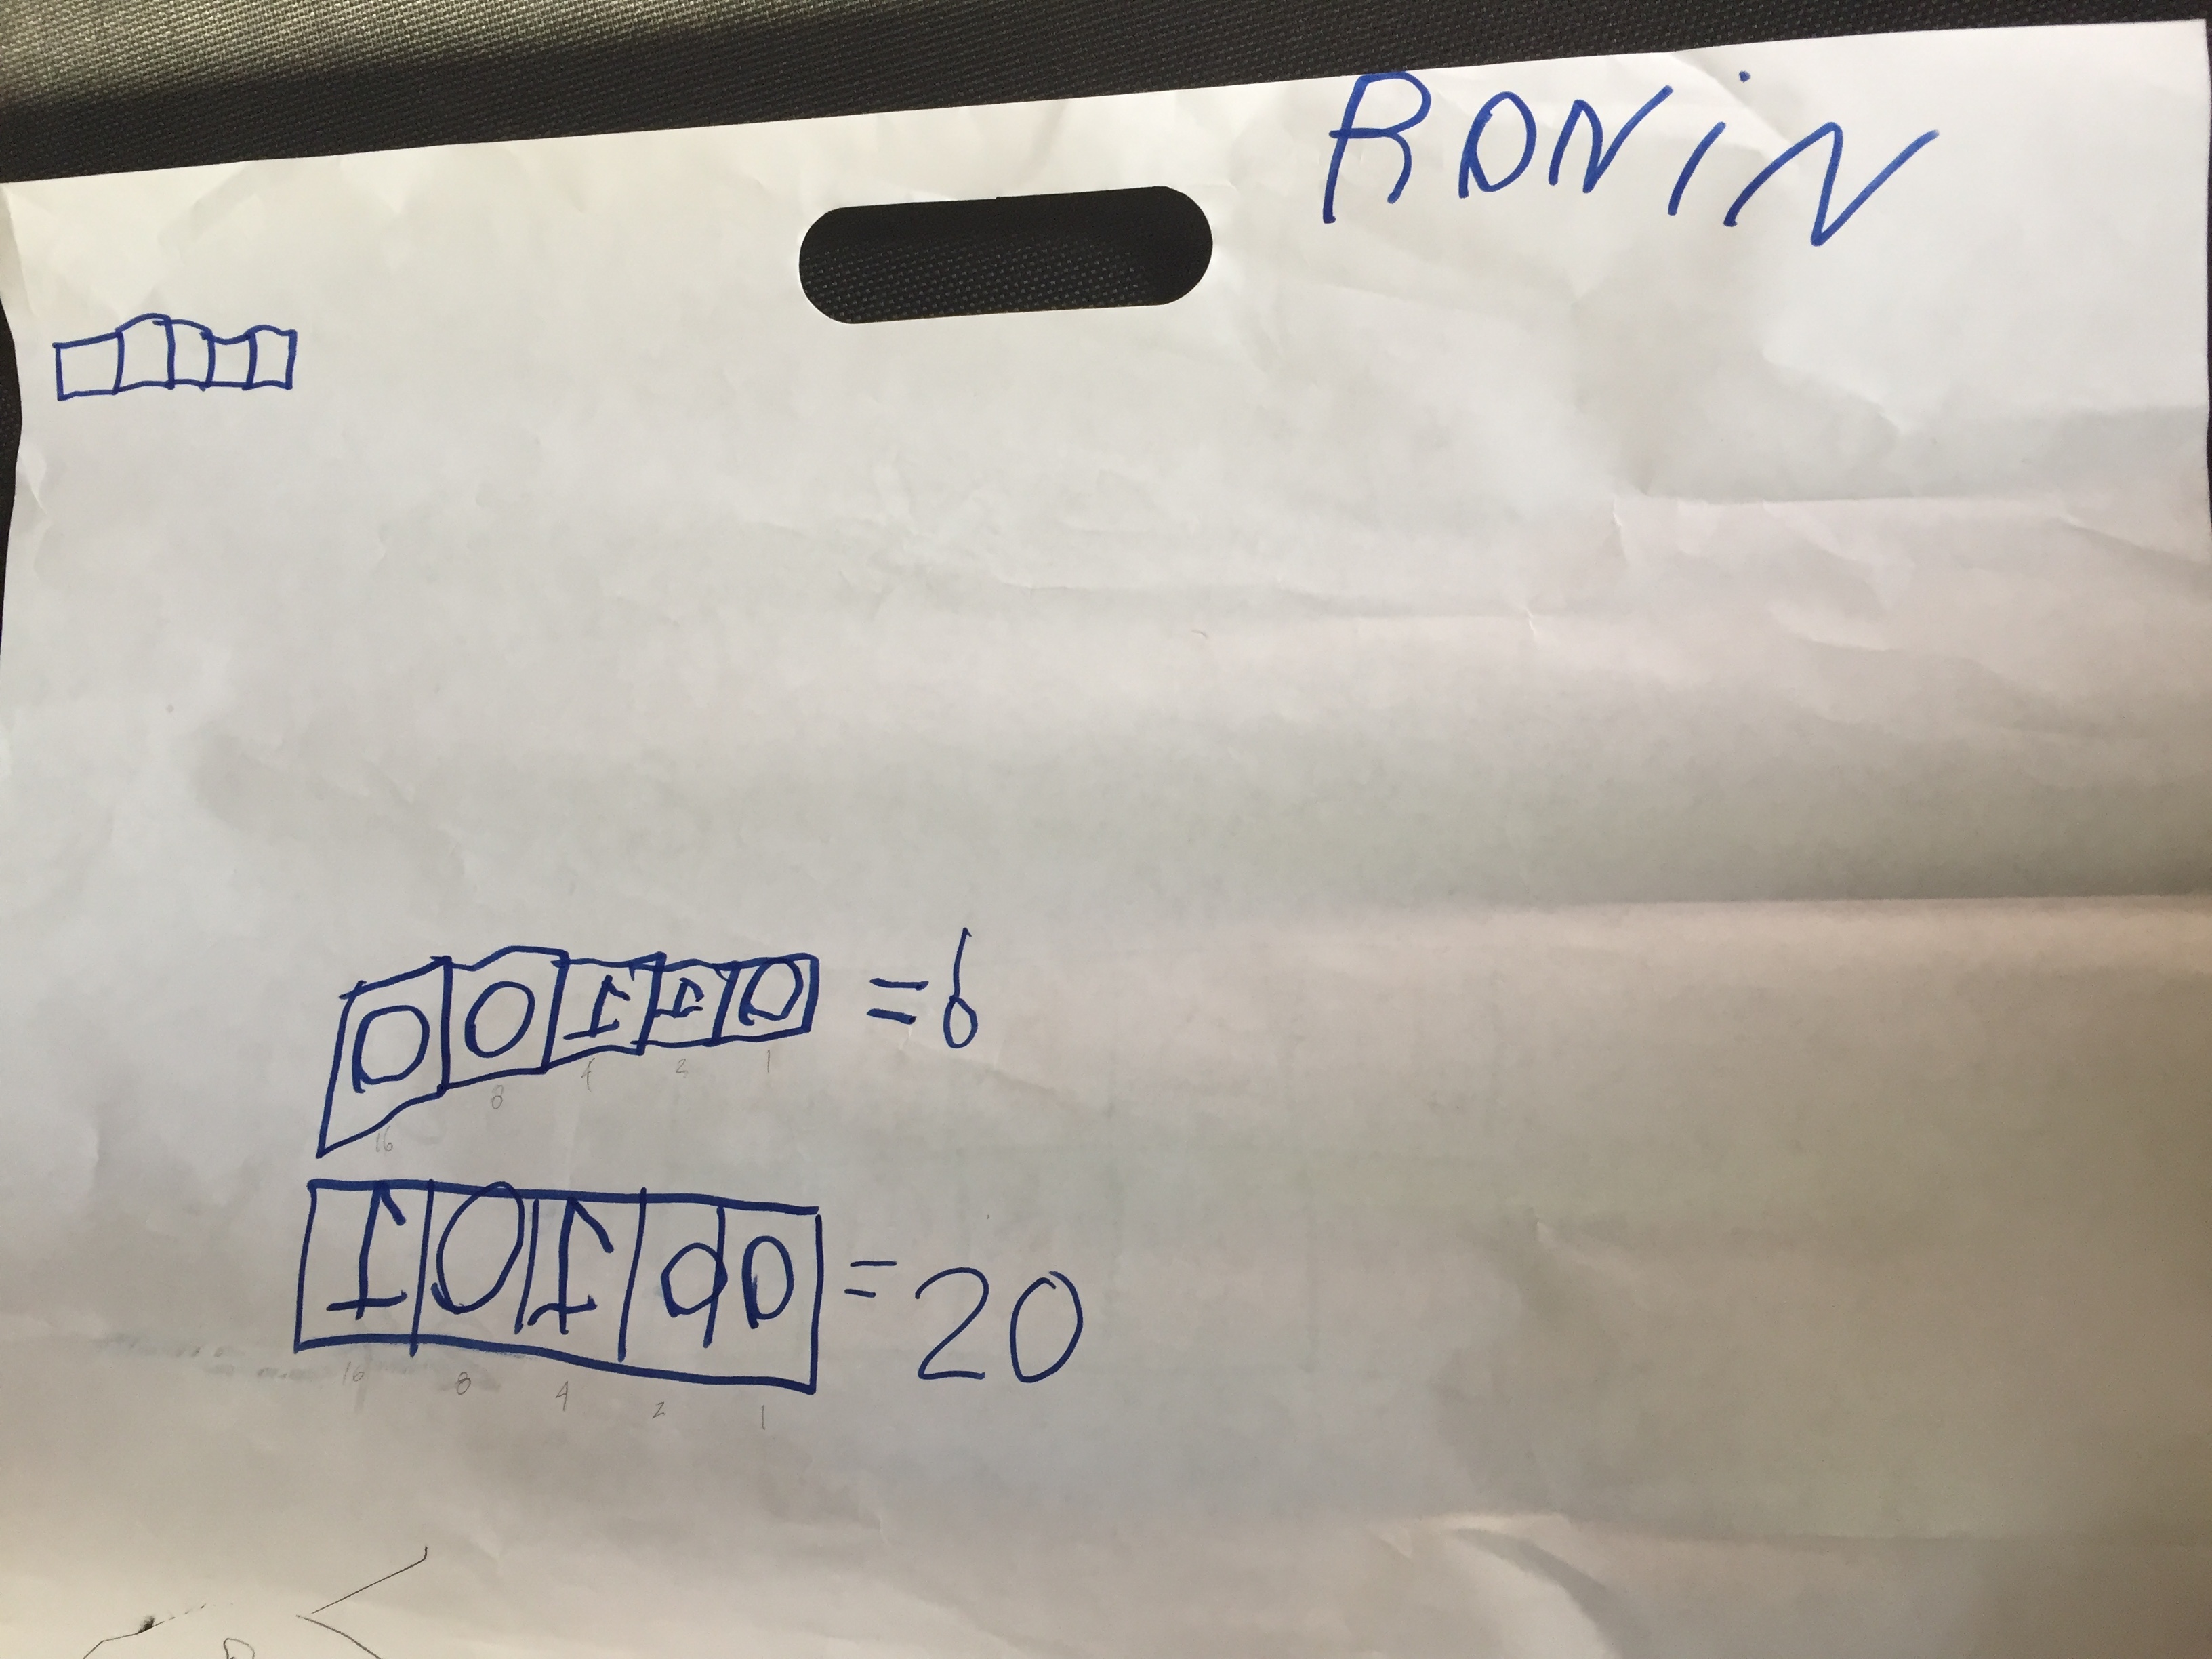 RONiN
00110 = 6
16 8 4 2 1
10100 = 20
16 8 4 2 1